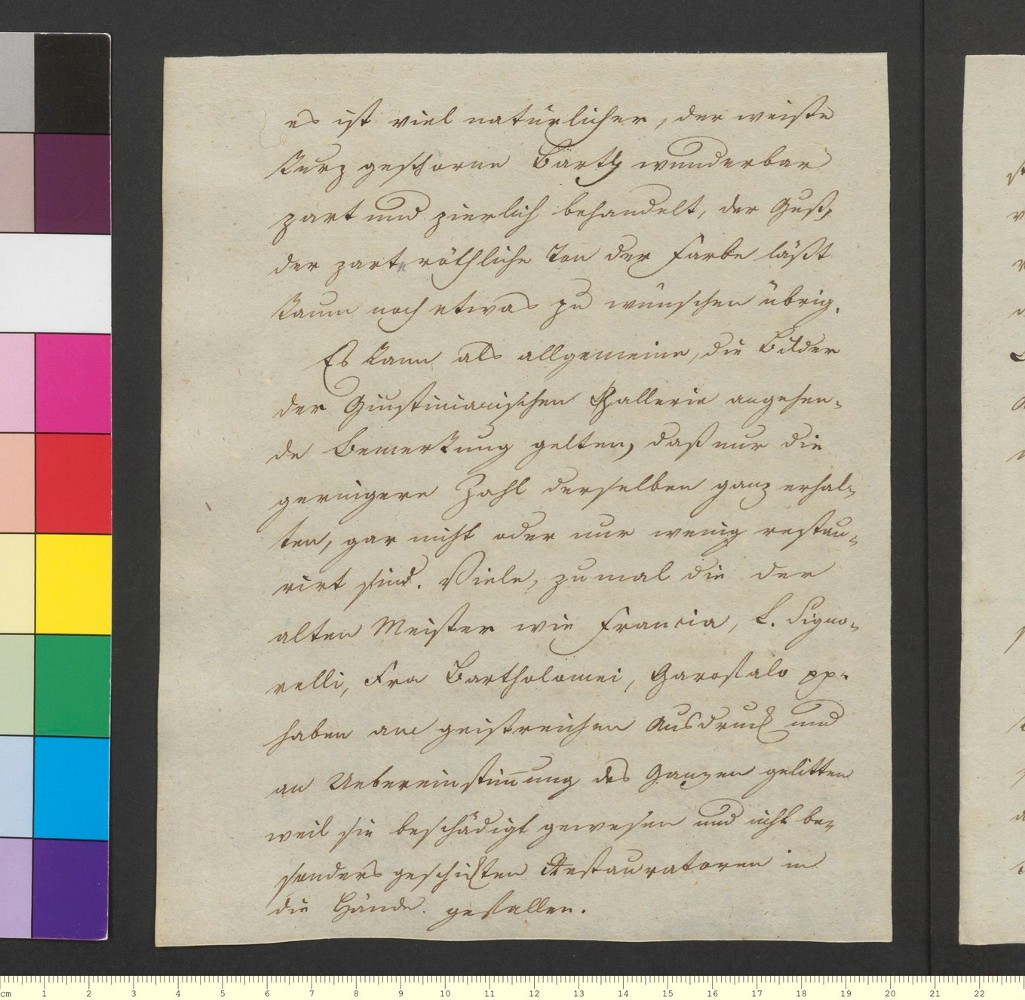 es ist viel natürlicher, der weiße
kurz geschorne Bart wunderbar
zart und zierlich behandelt, der Guß,
der zart röthliche Ton der Farbe läßt
kaum noch etwas zu wünschen übrig.
Es kann als allgemeine, die Bilder
der Giustinianischen Gallerie angehen-
de Bemerkung gelten, daß nur die
geringere Zahl derselben ganz erhal-
ten, gar nicht oder nur wenig restau-
rirt sind. Viele, zumal die der
alten Meister wie Francia, L. Signo-
relli, Fra Bartholomei, Garofalo pp.
haben am geistreichen Ausdruck und
an Uebereinstim̅ung des Ganzen gelitten
weil sie beschädigt gewesen und nicht be-
sonders geschickten Restauratoren in
die Hände gefallen.
cm 1 2 3 4 5 6 7 8 9 10 11 12 13 14 15 16 17 18 19 20 21 22